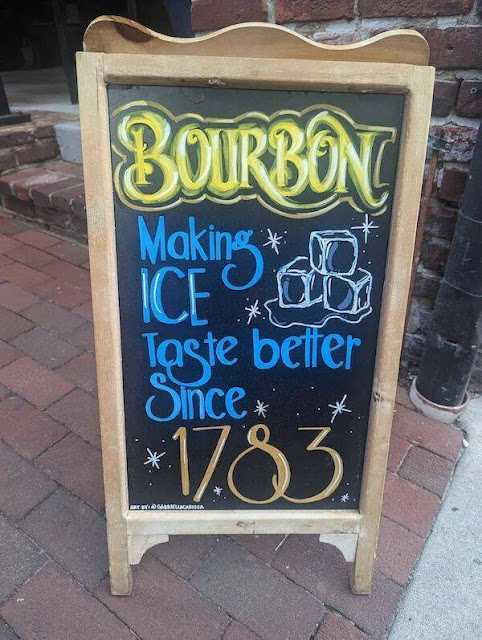 BOURBON
Making
ICE
Taste better
Since
1783